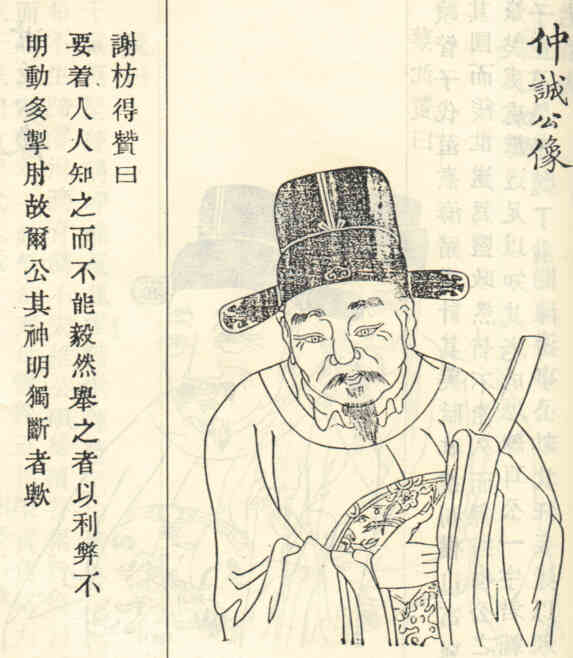 仲誠公像
謝枋得贊曰
要着人人知之而不能毅然舉之者以利弊不
明動多掣肘故爾公其神明獨斷者歟